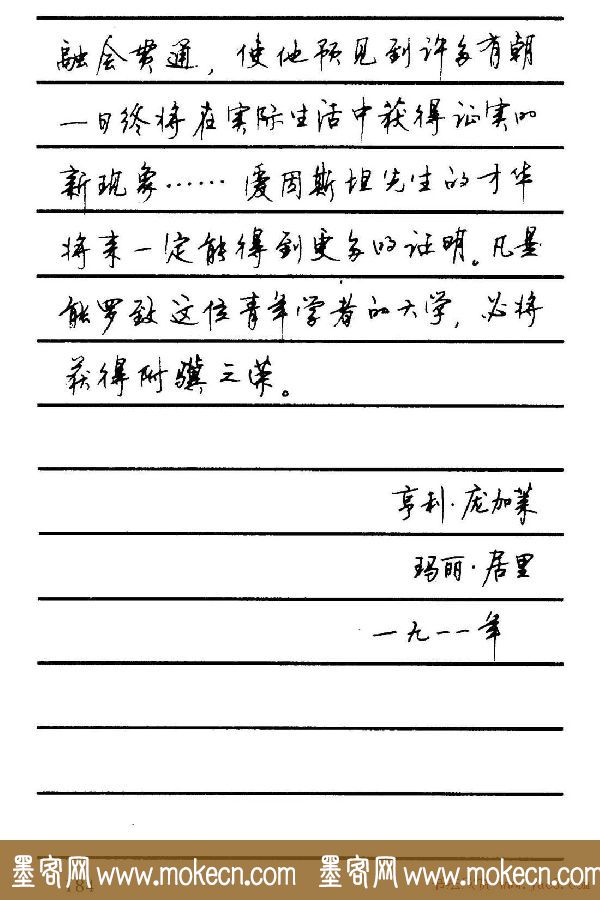 融会贯通，使他预见到许多有朝
一日终将在实际生活中获得证实的
新现象……爱因斯坦先生的才华
将来一定能得到更多的证明。凡是
能罗致这位青年学者的大学，必将
获得附骥之荣。
亨利·庞加莱
玛丽·居里
一九一一年
墨客网www.mokecn.com 墨客网www.mokecn.com
184